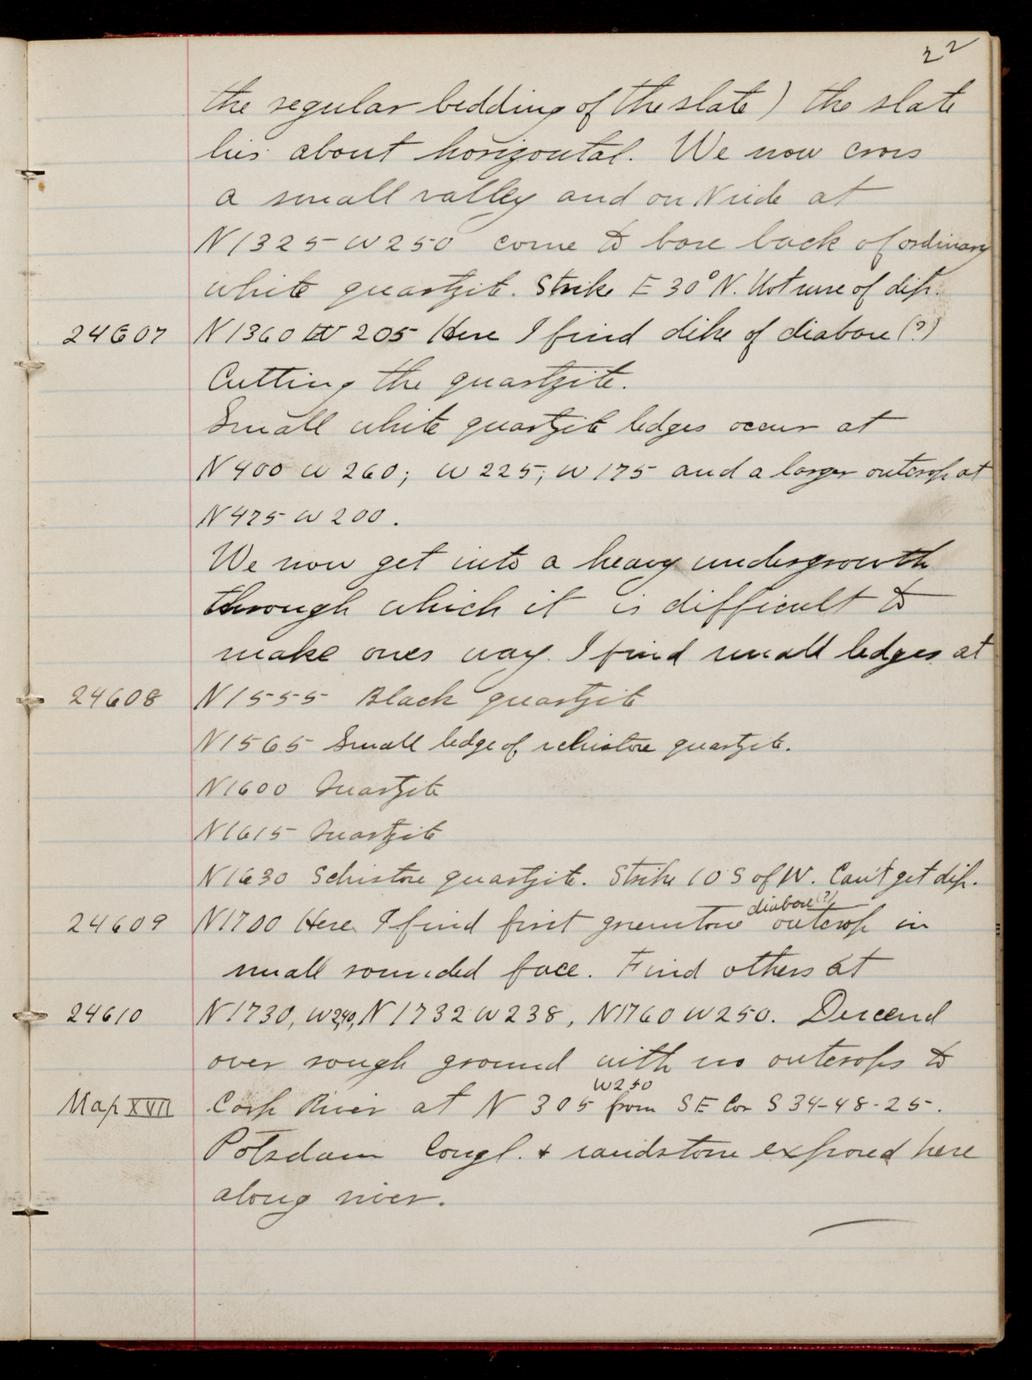 22
the regular bedding of the slate) the slate
lies about horizontal. We now cross
a small valley and on N side at
N1325 W250 come to bare back of ordinary
white quartzite. Strike E 30° N. Not sure of dip.
24607 N1360 W 205 Here I find dike of diabase (?)
Cutting the quartzite.
Small white quartzite ledges occur at
N400 W 260; W 225; W 175 and a larger outcrop at
N475 W 200.
We now get into a heavy undergrowth
through which it is difficult to
make ones way. I find small ledges at
24608 N1555 Black quartzite
N1565 Small ledge of schistose quartzite.
N1600 Quartzite
N1615 Quartzite
N1630 Schistose quartzite. Strike 10 S of W. Can't get dip.
diabase (?)
24609 N1700 Here I find first greenstone outcrop in
small rounded face. Find others at
24610 N1730, W240, N1732 W238, N1760 W250. Descend
over rough ground with no outcrops to
W250
Map XVII Carp River at N 305 from SE Cor S 34-48-25.
Potsdam Congl. & sandstone exposed here
along river.